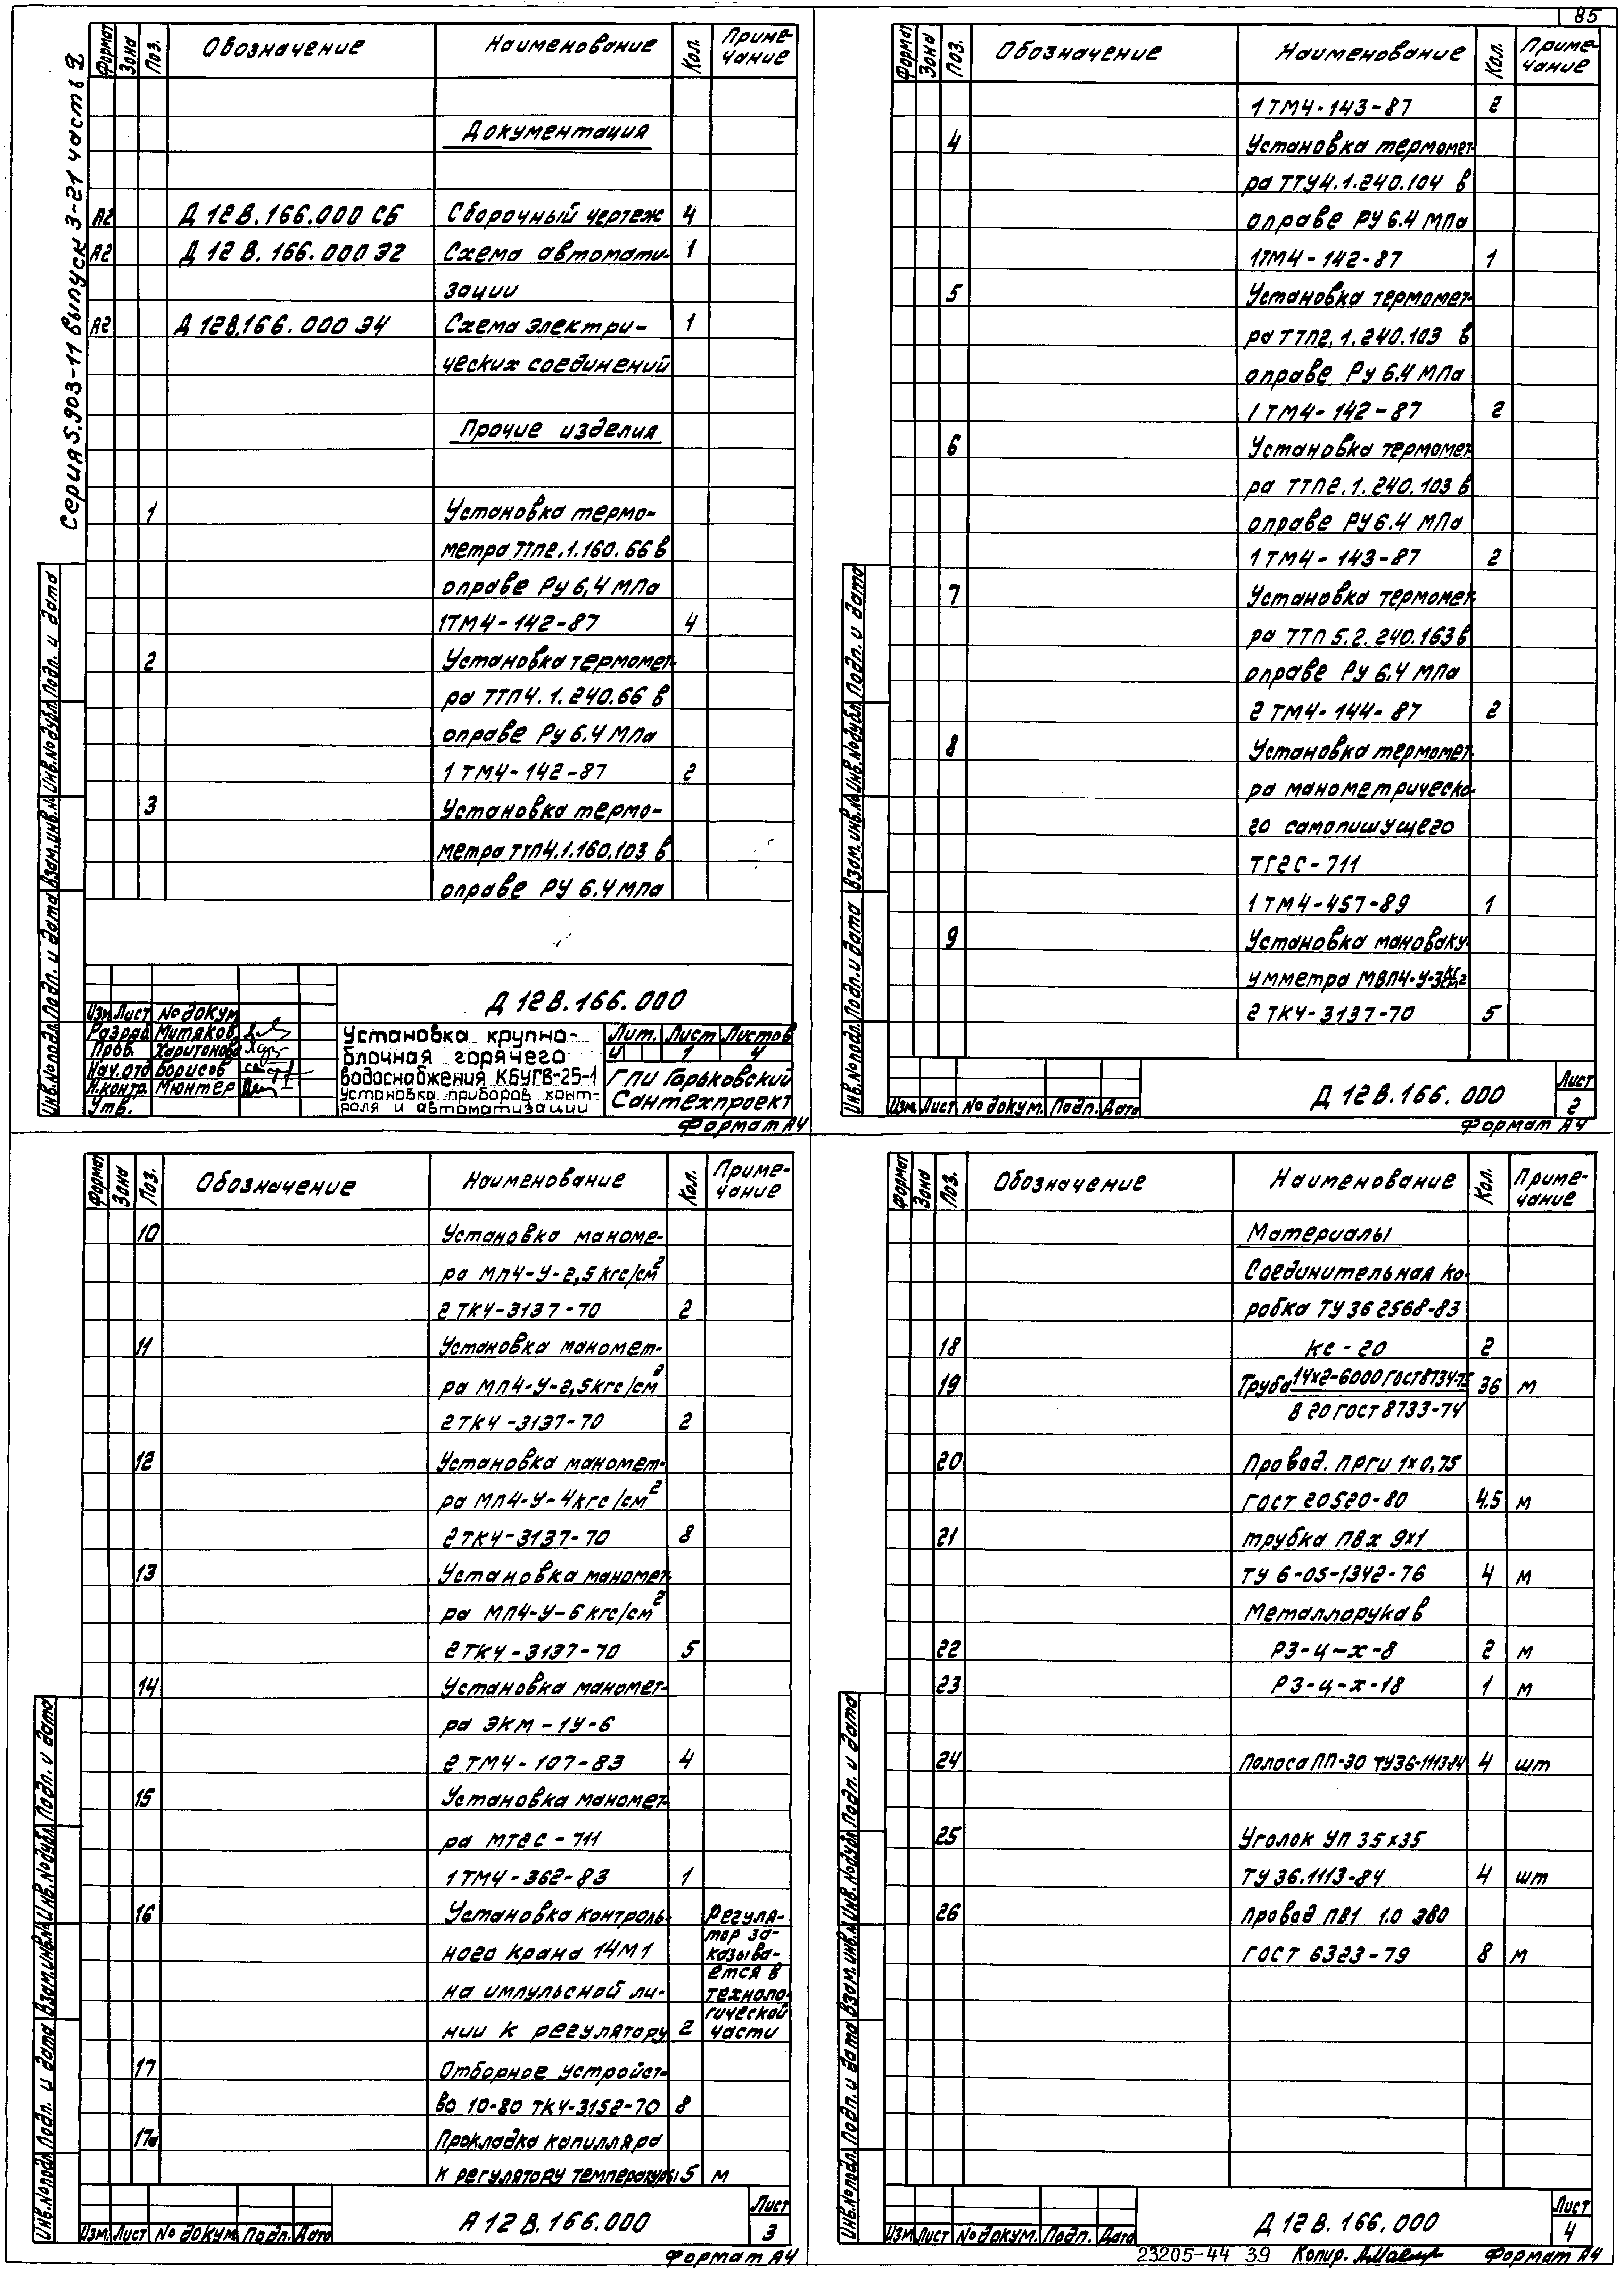 85
Серия 5.903-11 выпуск 3-21 часть 2
Формат Зона Поз. Обозначение Наименование Кол. Приме-
чание
Документация
А2 Д 12 В.166.000 СБ Сборочный чертеж 4
А2 Д 12 В.166.000 Э2 Схема автомати- 1
зации
А2 Д 12В.166.000 Э4 Схема электри- 1
ческих соединений
Прочие изделия
1 Установка термо-
метра ТТП2.1.160.66 в
оправе Ру 6,4 МПа
1ТМ4-142-87 4
2 Установка термомет-
ра ТТП4.1.240.66 в
оправе Ру 6.4 МПа
1 ТМ4-142-87 2
3 Установка термо-
метра ТТП4.1.160.103 в
оправе РУ 6.4 МПа
Инв.№подл. Подп. и дата Взам.инв.№ Инв.№дубл. Подп. и дата
Д 12 В.166.000
Изм Лист № докум
Разраб Митяков
Пров. Харитонова
Нач.отд Борисов
Н.контр. Мюнтер
Утв.
Установка крупно-
блочная горячего
водоснабжения КБУГВ-25-1
Установка приборов конт-
роля и автоматизации
Лит. Лист Листов
И 1 4
ГПИ Горьковский
Сантехпроект
Формат А4
Формат Зона Поз. Обозначение Наименование Кол. Приме-
чание
1 ТМ4-143-87 2
4 Установка термомет-
ра ТТУ4.1.240.104 в
оправе РУ 6.4 МПа
1ТМ4-142-87 1
5 Установка термомет-
ра ТТП2.1.240.103 в
оправе Ру 6.4 МПа
1 ТМ4-142-87 2
6 Установка термомет
ра ТТП2.1.240.103 в
оправе РУ 6.4 МПа
1 ТМ4-143-87 2
7 Установка термомет-
ра ТТП 5.2.240.163 в
оправе Ру 6.4 МПа
2 ТМ4-144-87 2
8 Установка термомет-
ра манометрическо-
го самопишущего
ТГ2С-711
1 ТМ4-457-89 1
9 Установка мановаку-
умметра МВП4-У-3кгс/см2
2 ТК4-3137-70 5
Инв.№подл. Подп. и дата Взам.инв.№ Инв.№дубл. Подп. и дата
Изм Лист № докум. Подп. Дата
Д 12 В.166.000
Лист
2
Формат А4
Формат Зона Поз. Обозначение Наименование Кол. Приме-
чание
10 Установка маноме-
ра МП4-У-2,5 кгс/см2
2 ТК4-3137-70 2
11 Установка маномет-
ра МП4-У-2,5кгс/см2
2ТК4-3137-70 2
12 Установка маномет-
ра МП4-У-4кгс/см2
2ТК4-3137-70 8
13 Установка маномет-
ра МП4-У-6 кгс/см2
2ТК4-3137-70 5
14 Установка маномет-
ра ЭКМ-1У-6
2 ТМ4-107-83 4
15 Установка маномет-
ра МТ2С-711
1ТМ4-362-83 1
16 Установка контроль- Регуля-
тор за-
ного крана 14М1 казыва-
ется в
на импульсной ли- техноло-
гической
нии к регулятору 2 части
17 Отборное устройст-
во 10-80 ТК4-3152-70 8
17а Прокладка капилляра
к регулятору температуры 5 м
Инв.№подл. Подп. и дата Взам.инв.№ Инв.№дубл. Подп. и дата
Изм. Лист № докум. Подп. Дата
А 12 В.166.000
Лист
3
Формат А4
Формат Зона Поз. Обозначение Наименование Кол. Приме-
чание
Материалы
Соединительная ко-
робка ТУ 36 2568-83
18 КС-20 2
19 Труба 14х2-6000 ГОСТ8734-75 36 м
В 20 ГОСТ 8733-74
20 Провод. ПРГИ 1х0,75
ГОСТ 20520-80 4.5 м
21 трубка ПВХ 9х1
ТУ 6-05-1342-76 4 м
Металлорукав
22 РЗ-Ц-Х-8 2 м
23 РЗ-Ц-Х-18 1 м
24 Полоса ПП-30 ТУ36-1113-84 4 шт
25 Уголок УП 35х35
ТУ 36.1113-84 4 шт
26 Провод ПВ1 1.0 380
ГОСТ 6323-79 8 м
Инв.№подл. Подп. и дата Взам.инв.№ Инв.№дубл. Подп. и дата
Изм Лист № докум. Подп. Дата
Д 12 В.166.000
Лист
4
23205-44 39 Копир. Формат А4